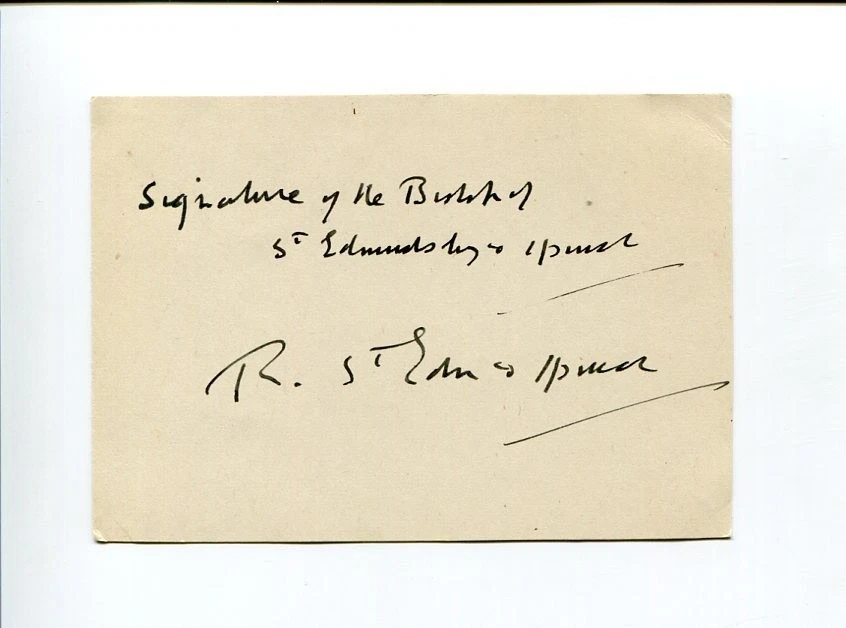 Signature of the Bishop of
St Edmundsbury & Ipswich
R. St Edm & Ipswich